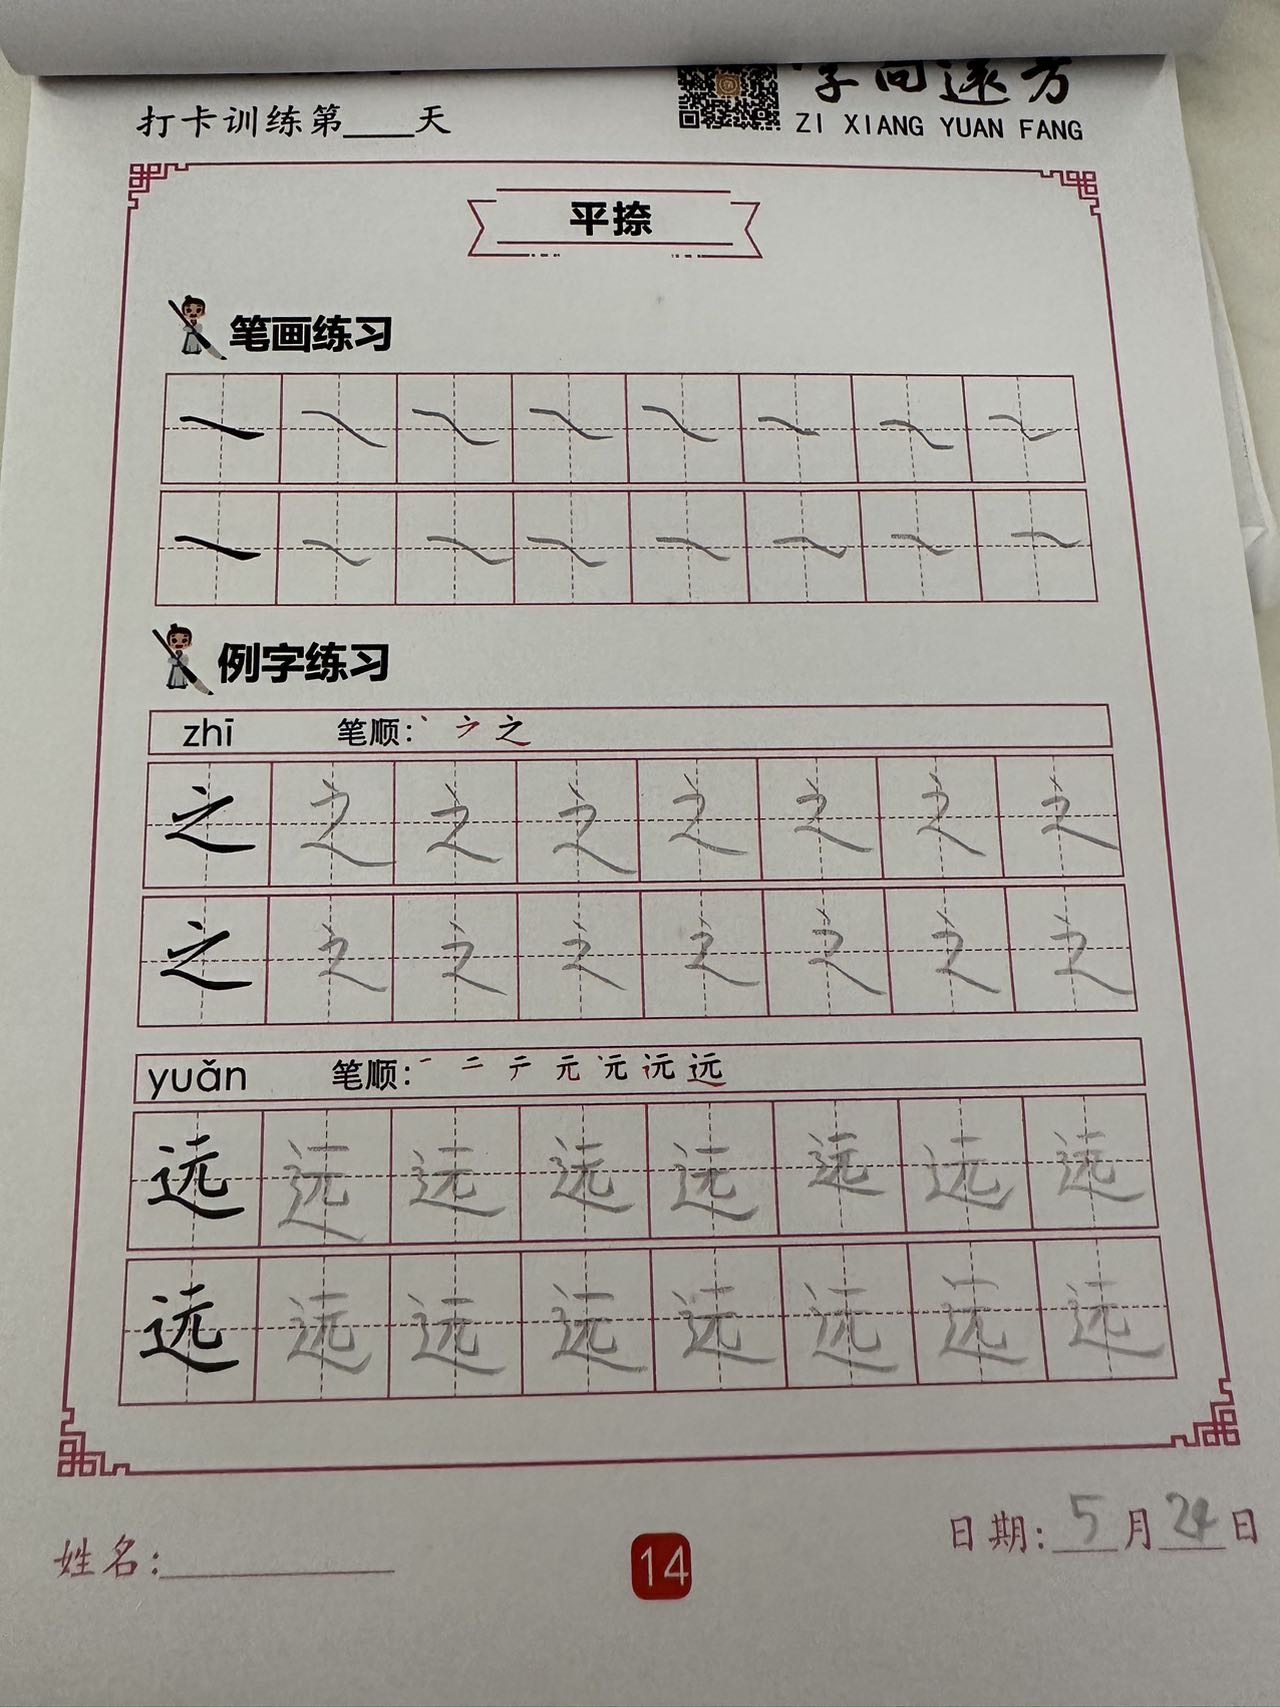 打卡训练第____天
字向远方
ZI XIANG YUAN FANG
平捺
笔画练习
㇏ ㇏ ㇏ ㇏ ㇏ ㇏ ㇏ ㇏
㇏ ㇏ ㇏ ㇏ ㇏ ㇏ ㇏ ㇏
例字练习
zhī 笔顺: 丶 之
之 之 之 之 之 之 之 之
之 之 之 之 之 之 之 之
yuǎn 笔顺: 一 二 元 远
远 远 远 远 远 远 远 远
远 远 远 远 远 远 远 远
姓名:________
14
日期: 5 月 24 日